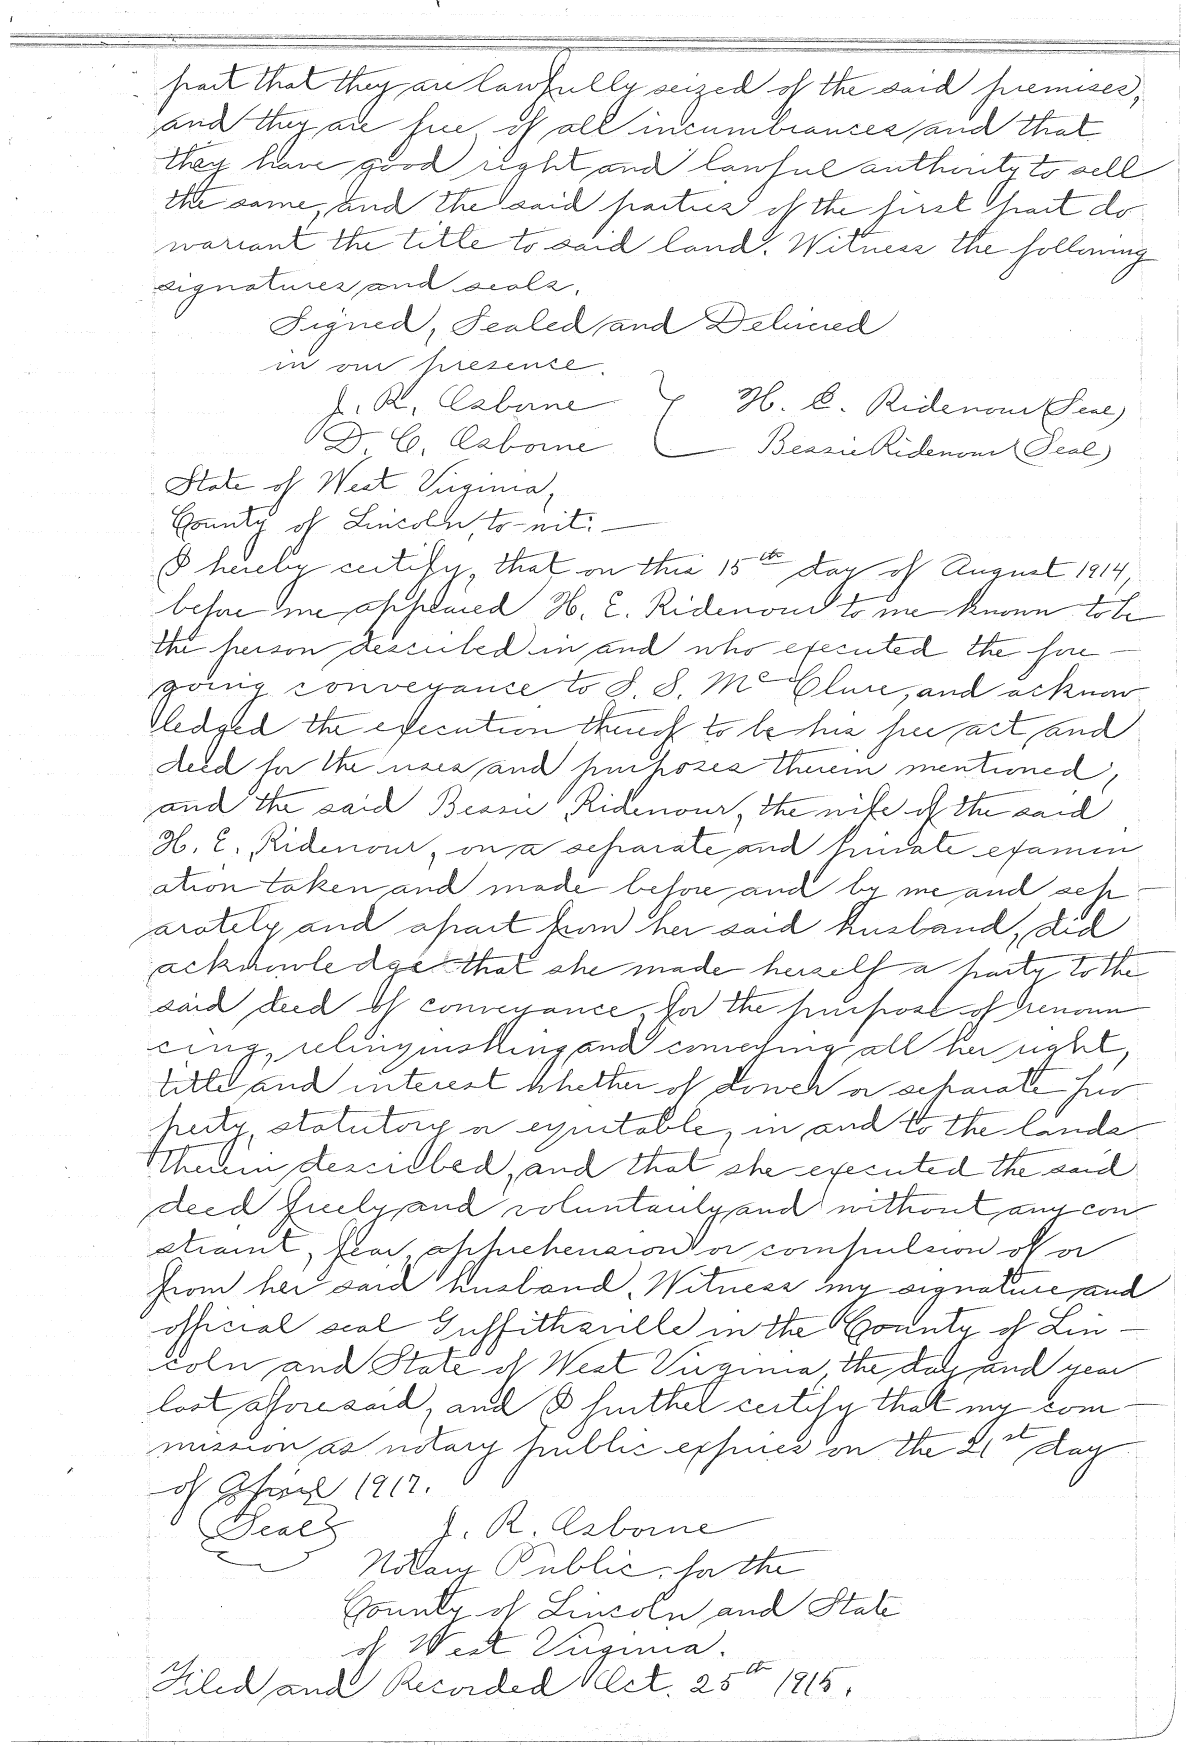 part that they are lawfully seized of the said premises,
and they are free of all incumbrances and that
they have good right and lawful authority to sell
the same, and the said parties of the first part do
warrant the title to said land. Witness the following
signatures and seals.
Signed, Sealed and Delivered
in our presence.
J. R. Osborne } H. E. Ridenour (Seal)
D. C. Osborne Bessie Ridenour (Seal)
State of West Virginia,
County of Lincoln, to-wit: —
I hereby certify, that on this 15th day of August 1914,
before me appeared H. E. Ridenour to me known to be
the person described in and who executed the fore-
going conveyance to S. S. McClure, and acknow
ledged the execution thereof to be his free act and
deed for the uses and purposes therein mentioned,
and the said Bessie Ridenour, the wife of the said
H. E. Ridenour, on a separate and private examin
ation taken and made before and by me and sep-
arately and apart from her said husband, did
acknowledge that she made herself a party to the
said deed of conveyance, for the purpose of renoun
cing, relinquishing and conveying all her right,
title and interest whether of dower or separate pro
perty, statutory or equitable, in and to the lands
therein described, and that she executed the said
deed freely and voluntarily and without any con
straint, fear, apprehension or compulsion of or
from her said husband. Witness my signature and
official seal Griffithsville in the County of Lin-
coln and State of West Virginia, the day and year
last aforesaid, and I further certify that my com-
mission as notary public expires on the 21st day
of April 1917.
(Seal) J. R. Osborne
Notary Public, for the
County of Lincoln and State
of West Virginia.
Filed and Recorded Oct. 25th 1915.